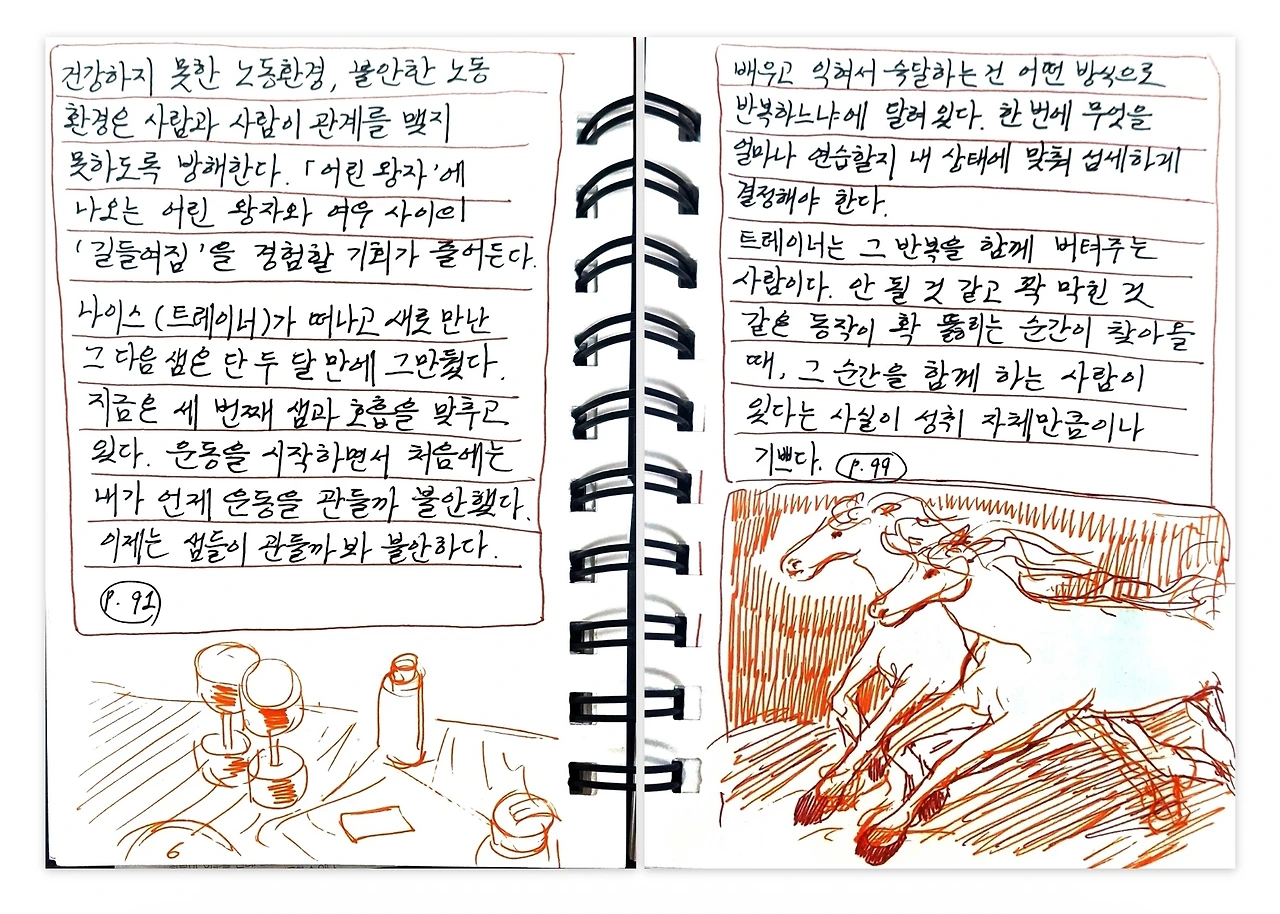 건강하지 못한 노동환경, 불안한 노동
환경은 사람과 사람이 관계를 맺지
못하도록 방해한다. 「어린 왕자'에
나오는 어린 왕자와 여우 사이의
'길들여짐'을 경험할 기회가 줄어든다.
나이스(트레이너)가 떠나고 새로 만난
그 다음 샘은 단 두 달 만에 그만뒀다.
지금은 세 번째 샘과 호흡을 맞추고
있다. 운동을 시작하면서 처음에는
내가 언제 운동을 관둘까 불안했다.
이제는 샘들이 관둘까봐 불안하다.
p. 91
6
배우고 익혀서 숙달하는 건 어떤 방식으로
반복하느냐에 달려 있다. 한 번에 무엇을
얼마나 연습할지 내 상태에 맞춰 섬세하게
결정해야 한다.
트레이너는 그 반복을 함께 버텨주는
사람이다. 안 될 것 같고 꽉 막힌 것
같은 동작이 확 뚫리는 순간이 찾아올
때, 그 순간을 함께 하는 사람이
있다는 사실이 성취 자체만큼이나
기쁘다. p. 99